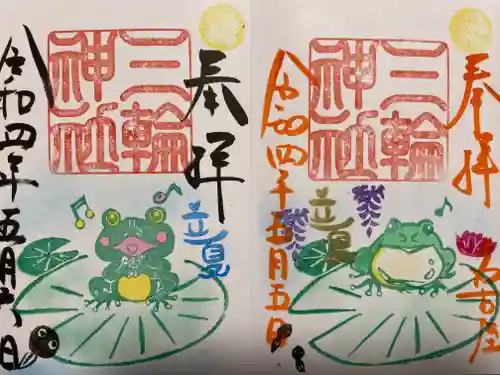 奉拝
三輪
神社
立夏
令和四年五月 日
奉拝
三輪
神社
立夏
名古屋
令和四年五月五日